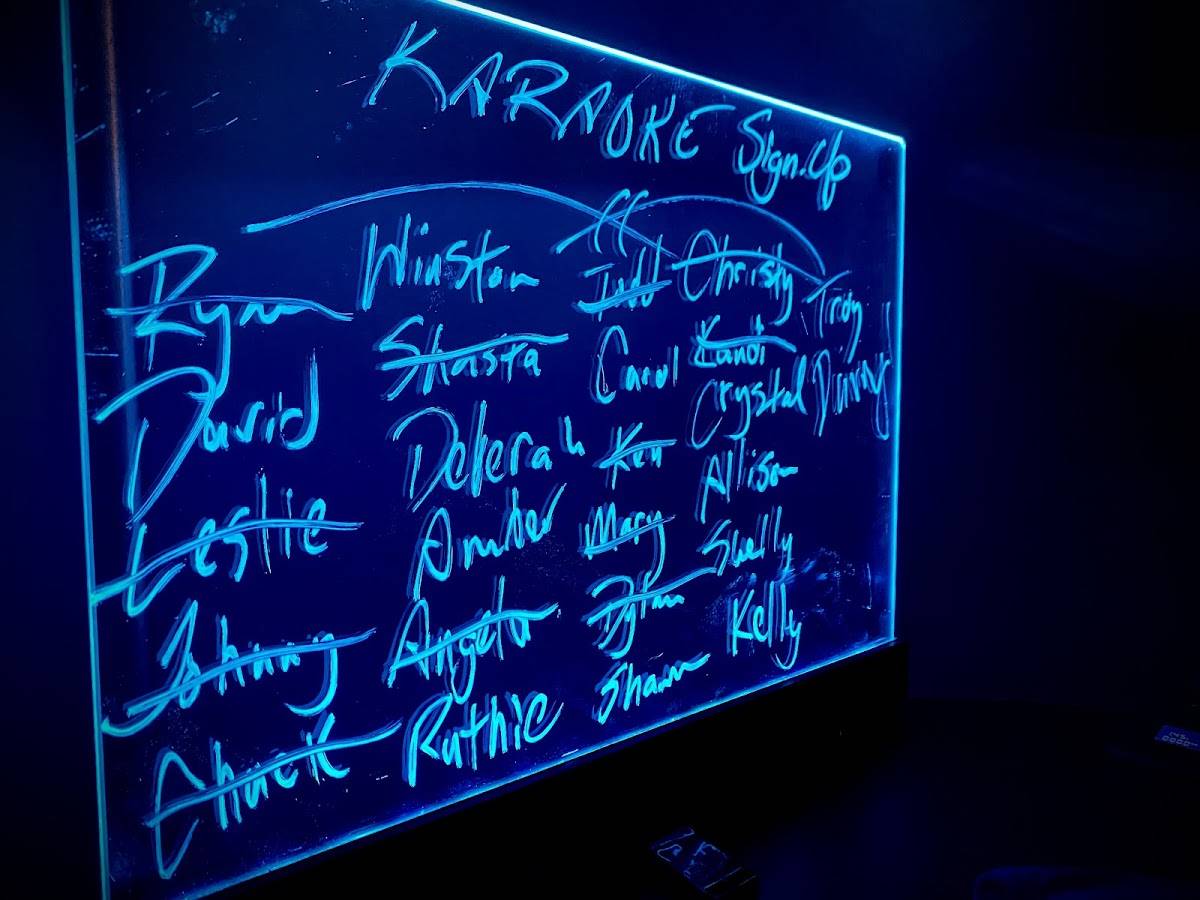 KARAOKE Sign-Up
Ryan
David
Leslie
Johnny
Chuck
Winston
Shasta
Deberah
Amber
Angela
Ruthie
Judd
Carol
Ken
Mary
Dylan
Shawn
Christy
Kandi
Crystal
Allison
Shelly
Kelly
Troy
Danny